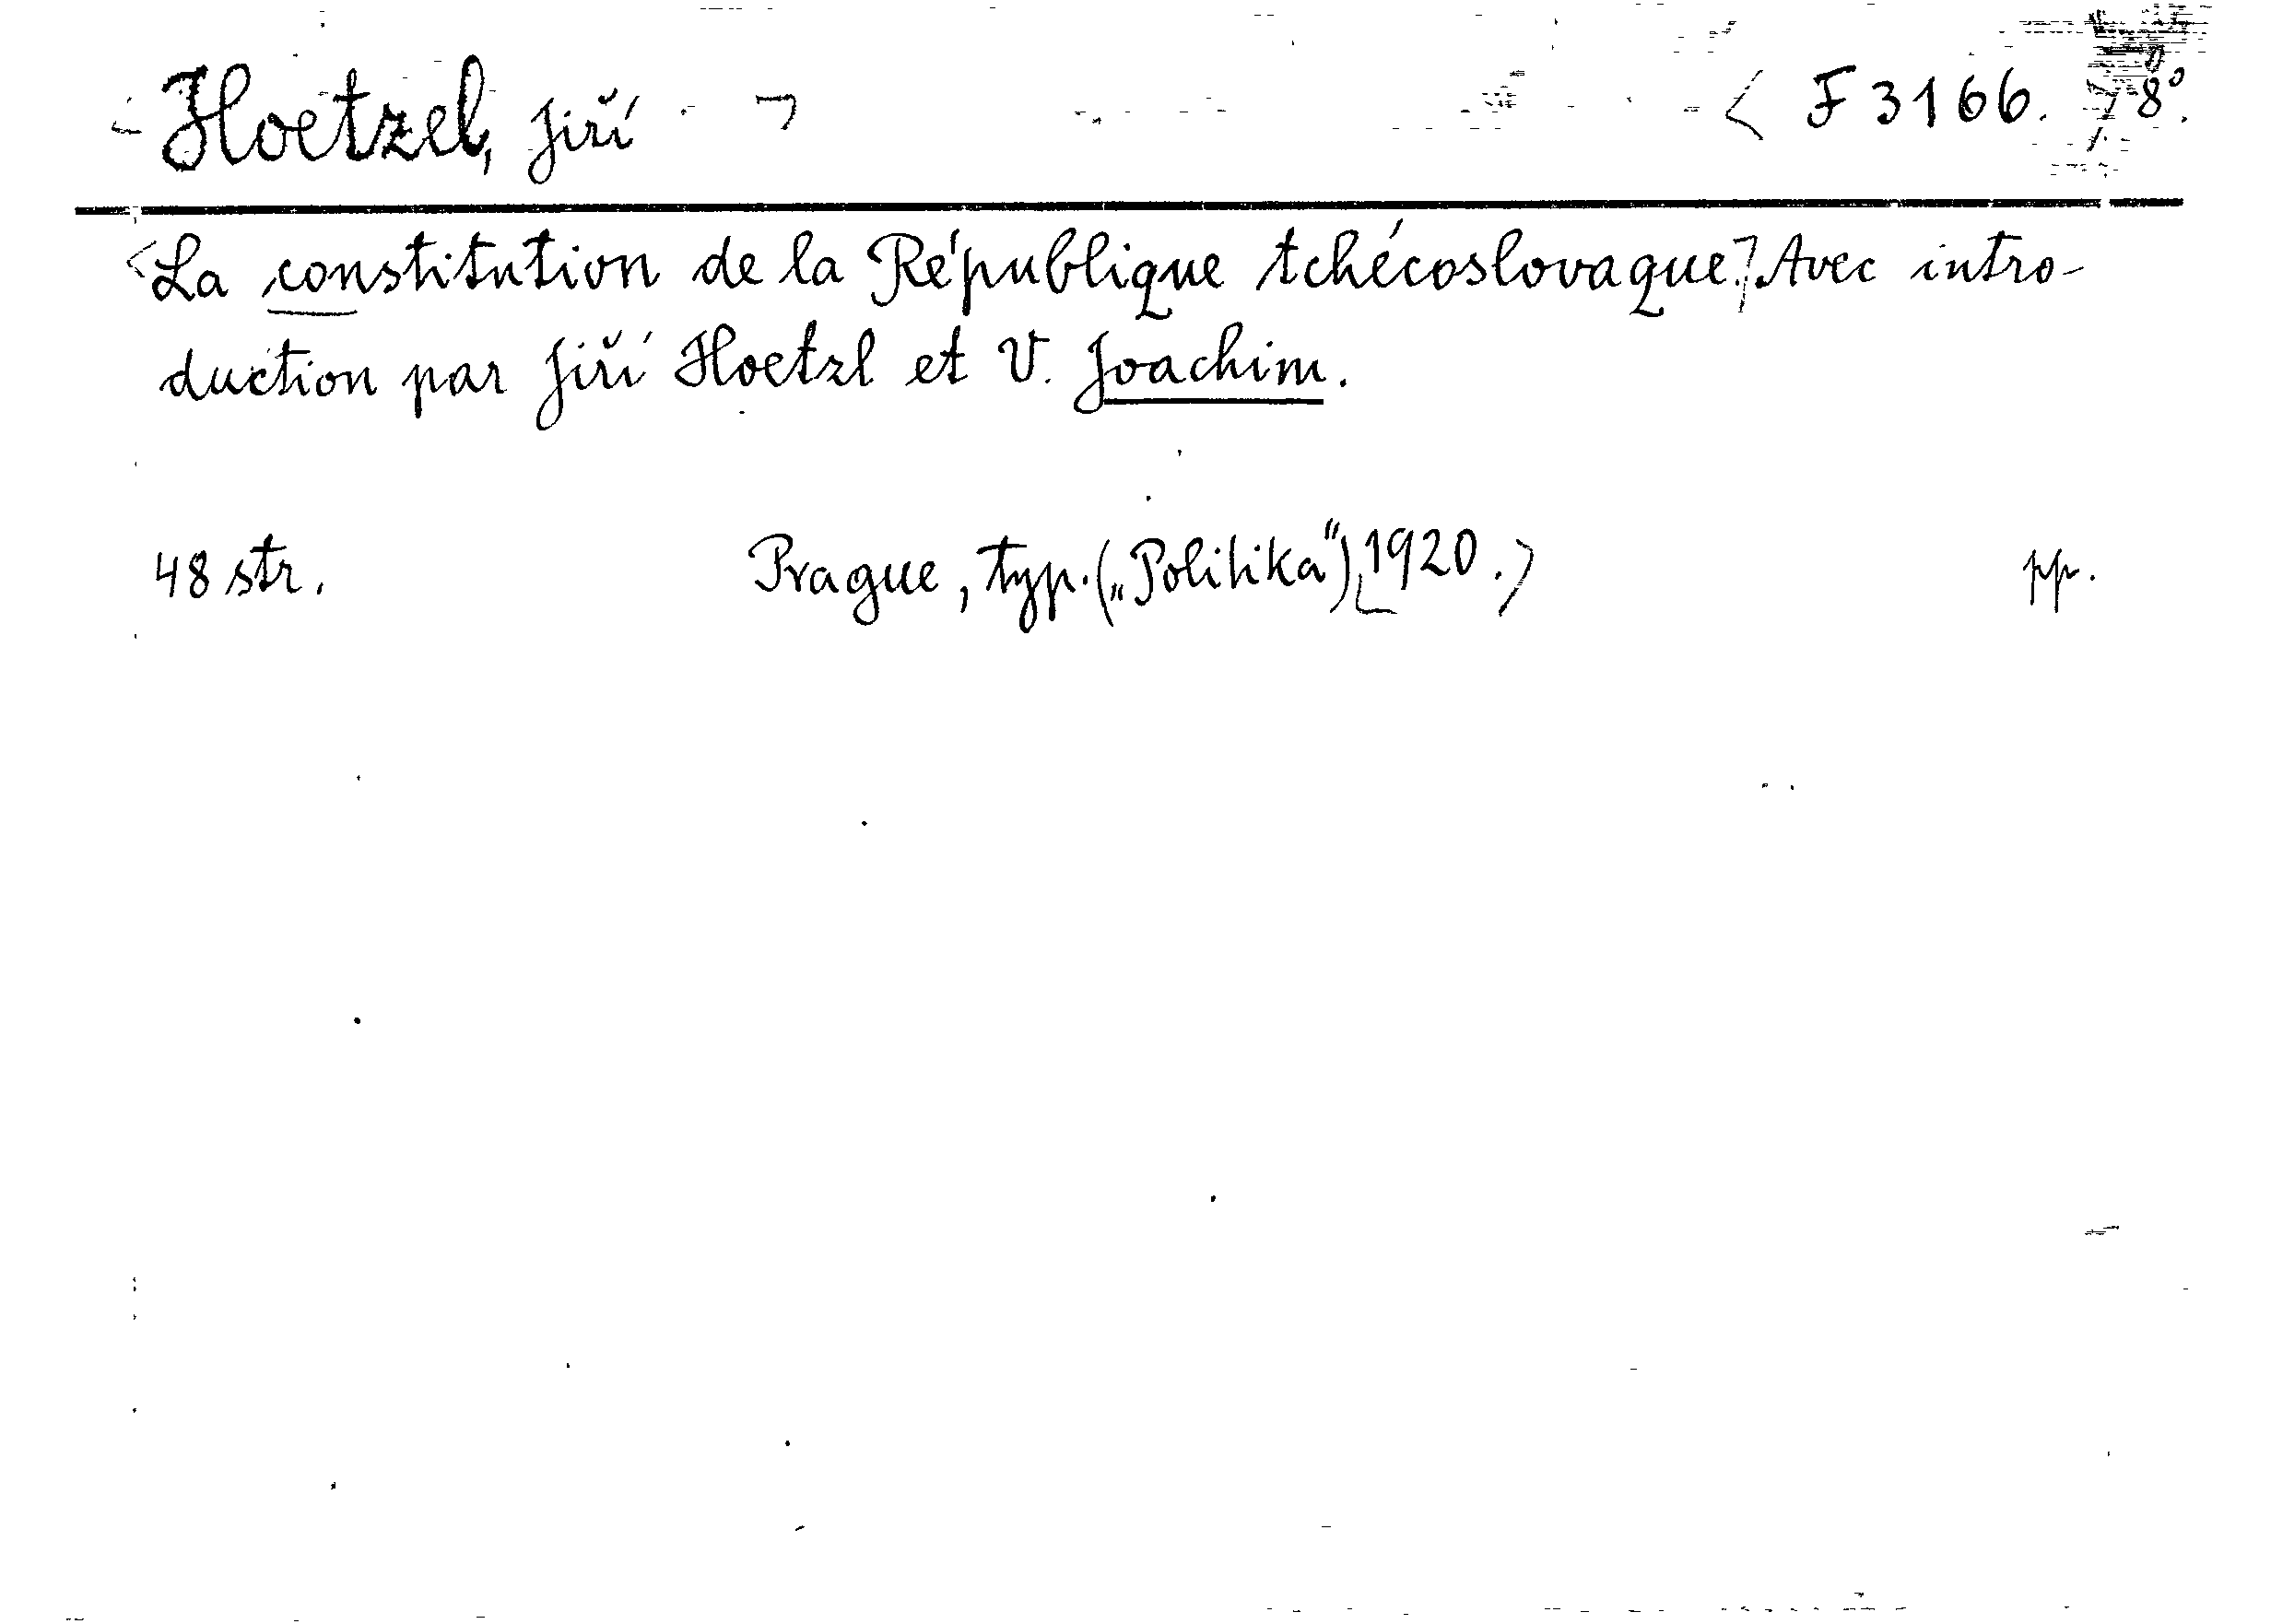 Hoetzel, Jiří < F 3166. > 8°.
<La constitution de la République tchécoslovaque.> Avec intro-
duction par Jiří Hoetzl et V. Joachim.
48 str. Prague, typ. („Politika") 1920. pp.